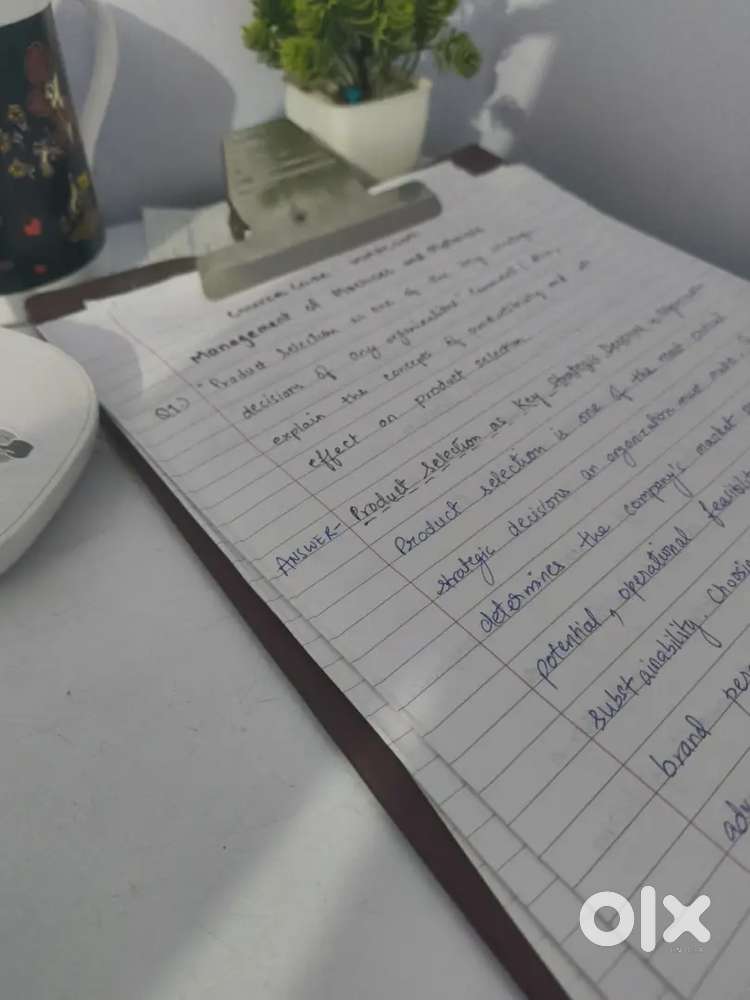 Course Code
Management of Machines and Materials
Q1) "Product selection is one of the key strategic
decisions of any organizations" Comment! Also,
explain the concept of productivity and its
effect on product selection.
ANSWER- Product Selection as Key Strategic Decision
Product selection is one of the most critical
strategic decisions an organization must make. 
determines the company's market
potential, operational feasibility
substainability. Choosing
brand
olx